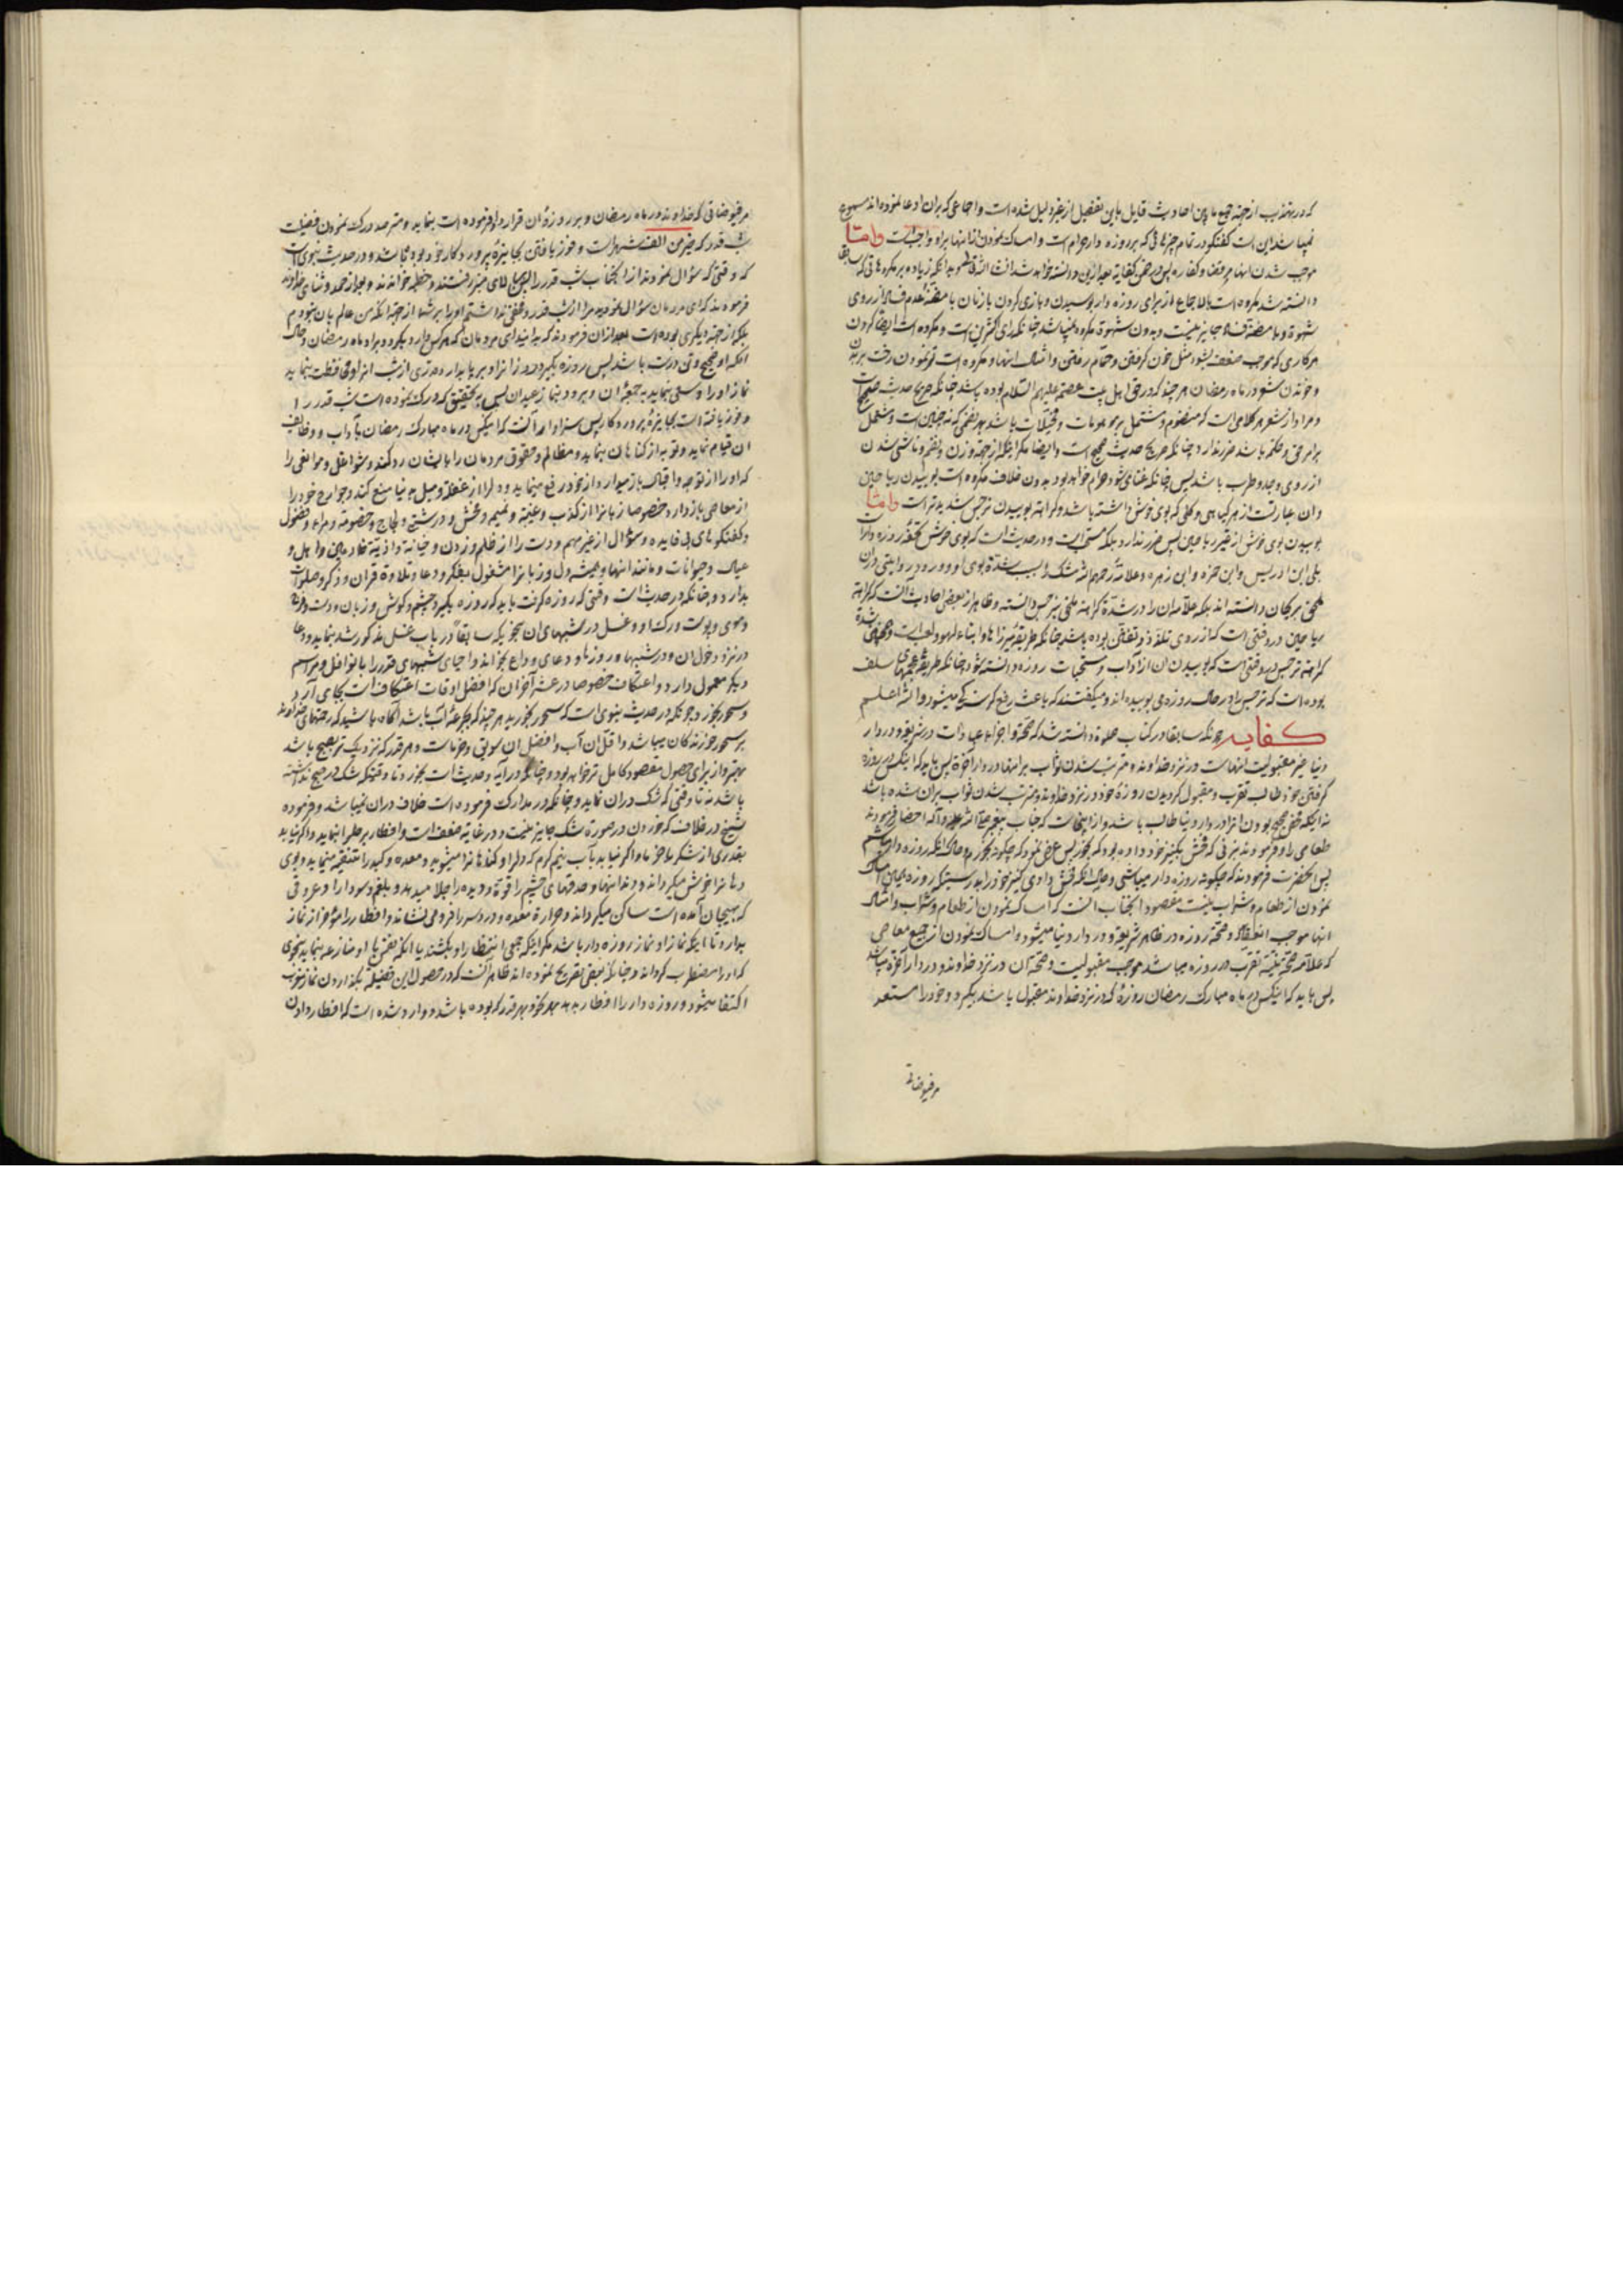 که در تهذیب از جهة جمع مابین احادیث قایل باین تفصیل از غیر دلیل شده است و اجماعی که بران ادعا نموده اند مسموع
نمیباشد این است گفتگو در تمام چیزهائی که بر روزه دار حرام است و امساک نمودن از انها براو واجب است واما
موجب شدن انها مر قضا و کفاره پس در ضمن کفایة بعد ازین دانسته خواهد شد انشاء الله
دانسته شد مکروه است بالاجماع از برای روزه دار بوسیدن و بازی کردن با زنان با مظنه عدم فساد از روی
شهوة و با مظنه فساد جایز نیست و بدون شهوة مکروه نمیباشد چنانکه رای اکثر این است و مکروه است ایضا کردن
هر کاری که موجب ضعف بشود مثل خون گرفتن و حمام رفتن و امثال اینها و مکروه است تر نمودن رخت بر بدن
و خواندن شعر در ماه رمضان هر چند که در حق اهل بیت عصمة علیهم السلام بوده باشد چنانکه صریح حدیث صحیح است
و مراد از شعر هر کلامی است که منظوم و مشتمل بر موهومات و مخیلات باشد
بر امر حق و حکمة باشد ضرر ندارد چنانکه صریح حدیث صحیح است و ایضا مکر اینکه از جهة وزن و نظم و ناشی شدن
از روی وجد و طرب باشد پس چنانکه غنا میشود حرام خواهد بود بدون خلاف مکروه است بوییدن ریاحین
و ان عبارتست از هر گیاهی و گلی که بوی خوش داشته باشد و کراهة بوییدن نرجس شدیدتر است واما
بوییدن بوی خوش از غیر ریاحین پس ضرر ندارد بلکه مستحب است و در حدیث است که بوی خوش تحفه روزه دار است
بلی ابن ادریس و ابن حمزه و ابن زهره و علامه رحمهم الله مشک را بسبب شدة بوی او و ورود روایتی در ان
ملحق بریحان دانسته اند بلکه علامه ان را در شدة کراهة ملحق بنرجس دانسته و ظاهر از بعضی احادیث آنست که کراهة
ریاحین در وقتی است که از روی تلذذ و تفنن بوده باشد چنانکه طریقه میرزاها و ابناء لهو و لعب است
کراهة نرجس در وقتی است که بوییدن ان از آداب و مستحبات روزه دانسته شود چنانکه طریقه سلف
بوده است که نرجس را در حال روزه می بوییده اند و میگفتند که باعث رفع گرسنگی میشود والله اعلم
کفایة چونکه سابقا در کتاب صلوة دانسته شد که صحة و اجزاء عبادات در شریعة و در دار
دنیا غیر مقبولیت انهاست در نزد خداوند و مترتب شدن ثواب بر انها در دار آخرة پس باید که اینکس در روزه
گرفتن خود طالب تقرب و مقبول گردیدن روزه خود در نزد خداوند و مترتب شدن ثواب بران شده باشد
نه اینکه محض صحیح بودن انرا در دار دنیا طالب باشد و از اینجاست که جناب پیغمبر صلی الله علیه و آله احضار فرمودند
طعامی را و فرمودند بزنی که فحش بکنیز خود داده بود که بخور پس عرض نمود که چگونه بخورم و حال انکه روزه دار میباشم
پس آنحضرت فرمودند که چگونه روزه دار میباشی و حال انکه فحش دادی کنیز خود را بدرستیکه روزه همان امساک
نمودن از طعام و شراب نیست مقصود انجناب انست که امساک نمودن از طعام و شراب و امثال
انها موجب انعقاد و صحة روزه در ظاهر شریعة و در دار دنیا میشود و امساک نمودن از جمیع معاصی
که علامة صحة نیة تقرب در روزه میباشد موجب مقبولیت و صحة آن در نزد خداوند و در دار آخرة میباشد
پس باید که اینکس در ماه مبارک رمضان روزه که در نزد خداوند مقبول باشد بگیرد و خود را مستعد
مر فیوضاتی
مر فیوضاتی که خداوند در ماه رمضان و بر روزه ان قرار داد فرموده است بنماید و مترصد درک نمودن فضیلت
شب قدر که خیر من الف شهر است و فوز یافتن بجایزه پروردکار خود بوده باشد و در حدیث نبوی است
که وقتی که سؤال نمودند از انجناب شب قدر را پس بالای منبر رفتند و خطبه خواندند و بعد از حمد و ثنای خداوند
فرمودند که ای مردمان سؤال نمودید مرا از شب قدر و مخفی نداشتم او را بر شما از جهة انکه من عالم بان نبودم
بلکه از جهة دیگری بوده است بعد ازان فرمودند که بدانید ای مردمان که هر کس وارد بگردد بر او ماه رمضان و حال
انکه او صحیح و تن درست باشد پس روزه بگیرد روز انرا و بر پا بدارد وردی از شب انرا و محافظت بنماید
نماز او را و سعی بنماید به جمعه ان و برود بنماز عید ان پس به تحقیق که درک نموده است شب قدر را
و فوز یافته است بجایزه پروردکار پس سزاوار آنست که اینکس در ماه مبارک رمضان بآداب و وظایف
ان قیام نماید و توبه از گناهان بنماید و مظالم و حقوق مردمان را بایشان رد کند و شواغل و موانعی را
که او را از توجه و اقبال باز میدارد از خود رفع بنماید و دل را از غفلة و میل به دنیا منع کند و جوارح خود را
از معاصی باز دارد خصوصا زبانرا از کذب و غیبة و نمیمه و فحش و درشتی و لجاج و خصومة و مراء و فضول
و گفتگوهای بی فایده و سؤال از غیر مهم و دست را از ظلم و زدن و خیانة و اذیة خادمان و اهل و
عیال و حیوانات و مانند انها و همیشه دل و زبانرا مشغول بفکر و دعا و تلاوة قران و ذکر و صلوات
بدارد و چنانکه در حدیث است وقتی که روزه گرفت باید که روزه بگیرد چشم و گوش و زبان و دست و فرج
و موی و پوست و رگ او و غسل در شبهای ان بنحویکه سابقا در باب غسل مذکور شد بنماید و دعا
در نزد دخول ان و در شبها و روزها و دعای وداع بخواند و احیای شبهای قدر را با نوافل و مراسم
دیگر معمول دارد و اعتکاف خصوصا در عشر آخر ان که افضل اوقات اعتکاف است بجای آرد
و سحور بخورد چونکه در حدیث نبوی است که سحور بخورید هر چند که بجرعه آب باشد آگاه باشید که رحمتهای خداوند
بر سحور خورندگان میباشد و اقل ان آب و افضل ان سویق و خرماست و هر قدر که نزدیک تر بصبح باشد
بهتر و از برای حصول مقصود کامل تر خواهد بود و چنانکه در آیه و حدیث است بخورد تا وقتیکه شک در صبح نداشته
باشد نه تا وقتی که شک دران نماید و چنانکه در مدارک فرموده است خلاف دران نمیباشد و فرموده
شیخ در خلاف که خوردن در صورة شک جایز نیست در غایة ضعف است و افطار بر حلوا بنماید و اگر نیابد
بقدری از شکر یا خرما و اگر نیابد بآب نیم گرم که دل را و گناهانرا میشوید و معده و کبد را تنقیه مینماید و بوی
دهانرا خوش میگرداند و دندانها و حدقهای چشم را قوة و دیده را جلا میدهد و بلغم و سودا را و عروقی
که بهیجان آمده است ساکن میگرداند و حرارة معده و درد سر را فرو می نشاند و افطار را مؤخر از نماز
بدارد تا اینکه نماز او نماز روزه دار باشد مکر اینکه جمعی انتظار او بکشند یا انکه نفس با او منازعه بنماید بنحوی
که او را مضطرب گرداند و چنانکه بعضی تصریح نموده اند ظاهر آنست که در حصول این فضیلة بگذاردن نماز مغرب
اکتفا میشود و روزه دار را افطار بدهد بهر نحو و بهر قدر که بوده باشد و وارد شده است که افطار دادن